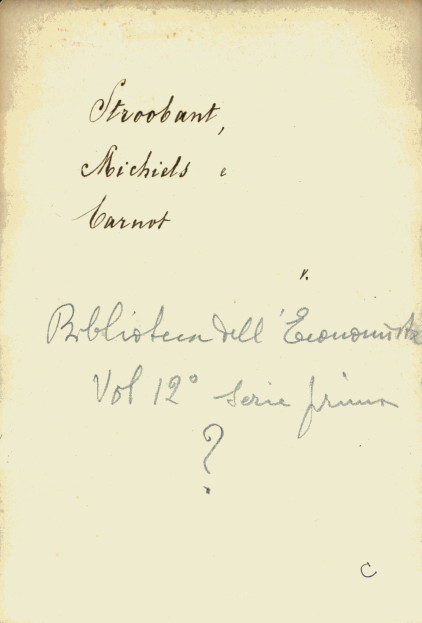 Stroobant,
Michiels e
Carnot
v.
Biblioteca dell'Economista
Vol 12° serie prima
?
C